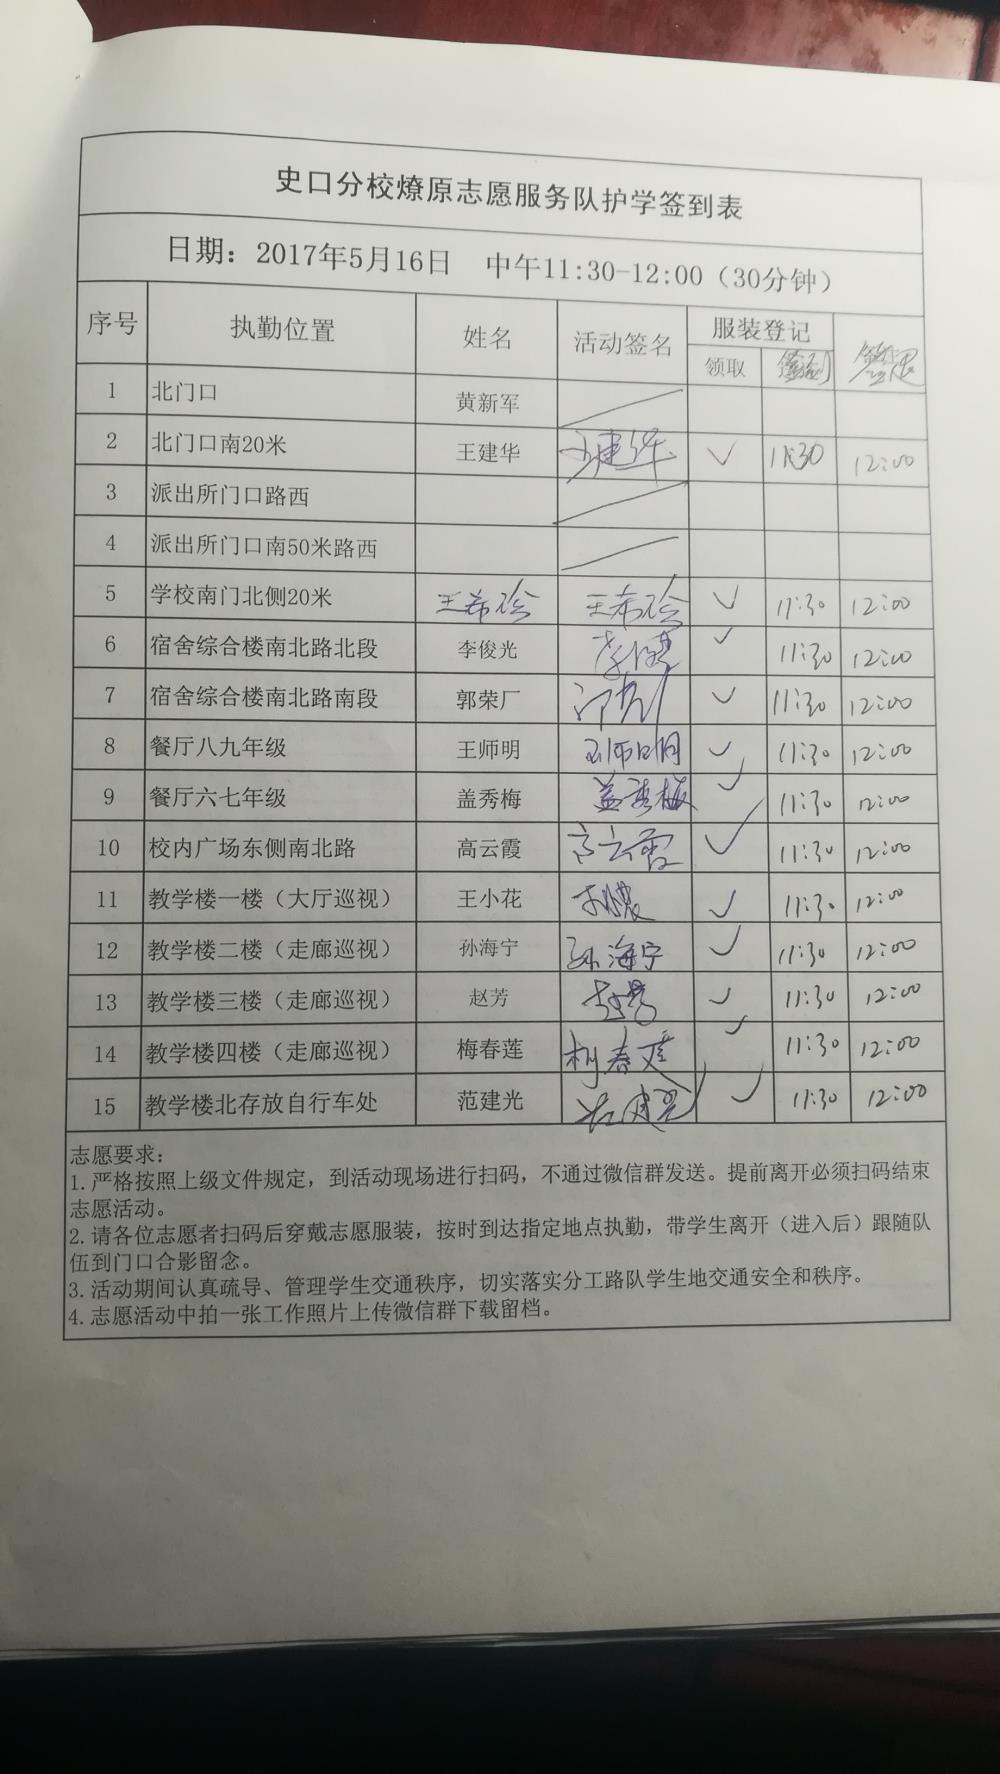 史口分校燎原志愿服务队护学签到表
日期：2017年5月16日 中午11:30-12:00（30分钟）
序号 执勤位置 姓名 活动签名 服装登记 签退
领取 签到
1 北门口 黄新军
2 北门口南20米 王建华 王建华 ✓ 11:30 12:00
3 派出所门口路西
4 派出所门口南50米路西
5 学校南门北侧20米 王希 王希 ✓ 11:30 12:00
6 宿舍综合楼南北路北段 李俊光 ✓ 11:30 12:00
7 宿舍综合楼南北路南段 郭荣厂 ✓ 11:30 12:00
8 餐厅八九年级 王师明 王师明 ✓ 11:30 12:00
9 餐厅六七年级 盖秀梅 盖秀梅 ✓ 11:30 12:00
10 校内广场东侧南北路 高云霞 高云霞 ✓ 11:30 12:00
11 教学楼一楼（大厅巡视） 王小花 ✓ 11:30 12:00
12 教学楼二楼（走廊巡视） 孙海宁 孙海宁 ✓ 11:30 12:00
13 教学楼三楼（走廊巡视） 赵芳 赵芳 ✓ 11:30 12:00
14 教学楼四楼（走廊巡视） 梅春莲 梅春莲 ✓ 11:30 12:00
15 教学楼北存放自行车处 范建光 范建光 ✓ 11:30 12:00
志愿要求：
1.严格按照上级文件规定，到活动现场进行扫码，不通过微信群发送。提前离开必须扫码结束
志愿活动。
2.请各位志愿者扫码后穿戴志愿服装，按时到达指定地点执勤，带学生离开（进入后）跟随队
伍到门口合影留念。
3.活动期间认真疏导、管理学生交通秩序，切实落实分工路队学生地交通安全和秩序。
4.志愿活动中拍一张工作照片上传微信群下载留档。